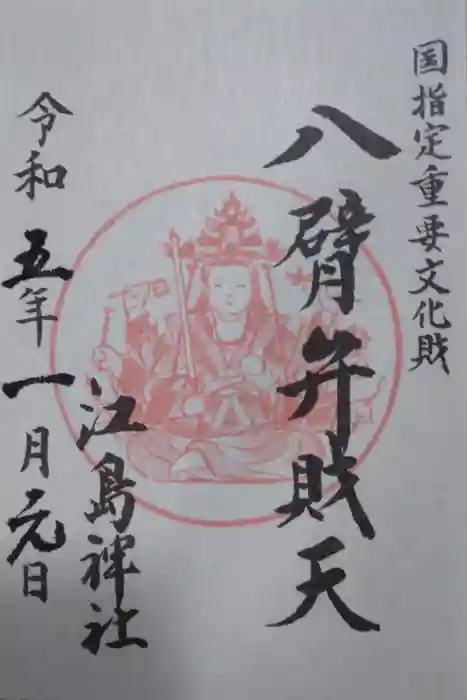 国指定重要文化財
八臂弁財天
江島神社
令和五年一月元日